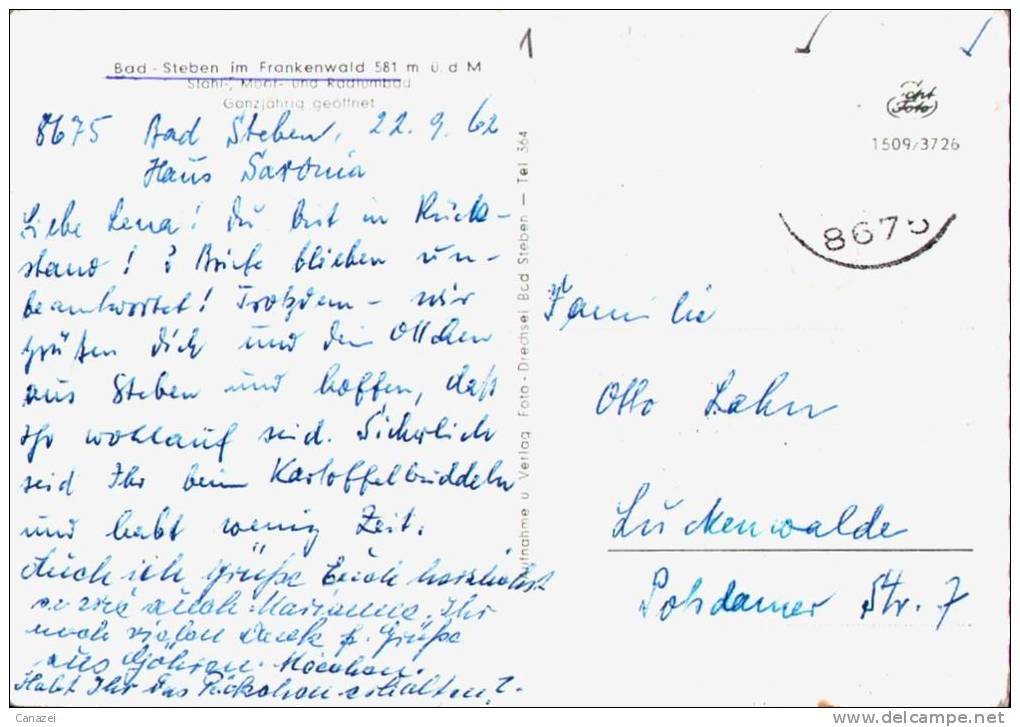 1
Bad-Steben im Frankenwald 581 m ü. d M
Stahl-, Moor- und Radiumbad
Ganzjährig geöffnet
8675 Bad Steben, 22. 9. 62
Haus Saxonia
Liebe Lena! Du bist in Rück-
stand! 2 Briefe blieben un-
beantwortet! Trotzdem - wir
grüßen Dich und Dein Ottchen
aus Steben und hoffen, daß
Ihr wohlauf seid. Sicherlich
seid Ihr beim Kartoffelbuddeln
und habt wenig Zeit.
Auch ich grüße Euch herzlichst
sowie auch Marianne. Ihr
noch vielen Dank f. Grüße
aus Göhren.
Habt Ihr das Päckchen erhalten?
Aufnahme u Verlag Foto-Drechsel Bad Steben — Tel 364
Echt
Foto
1509/3726
8675
Familie
Otto Lehn
Luckenwalde
Potsdamer Str. 7
Canazei
www.delcampe.net